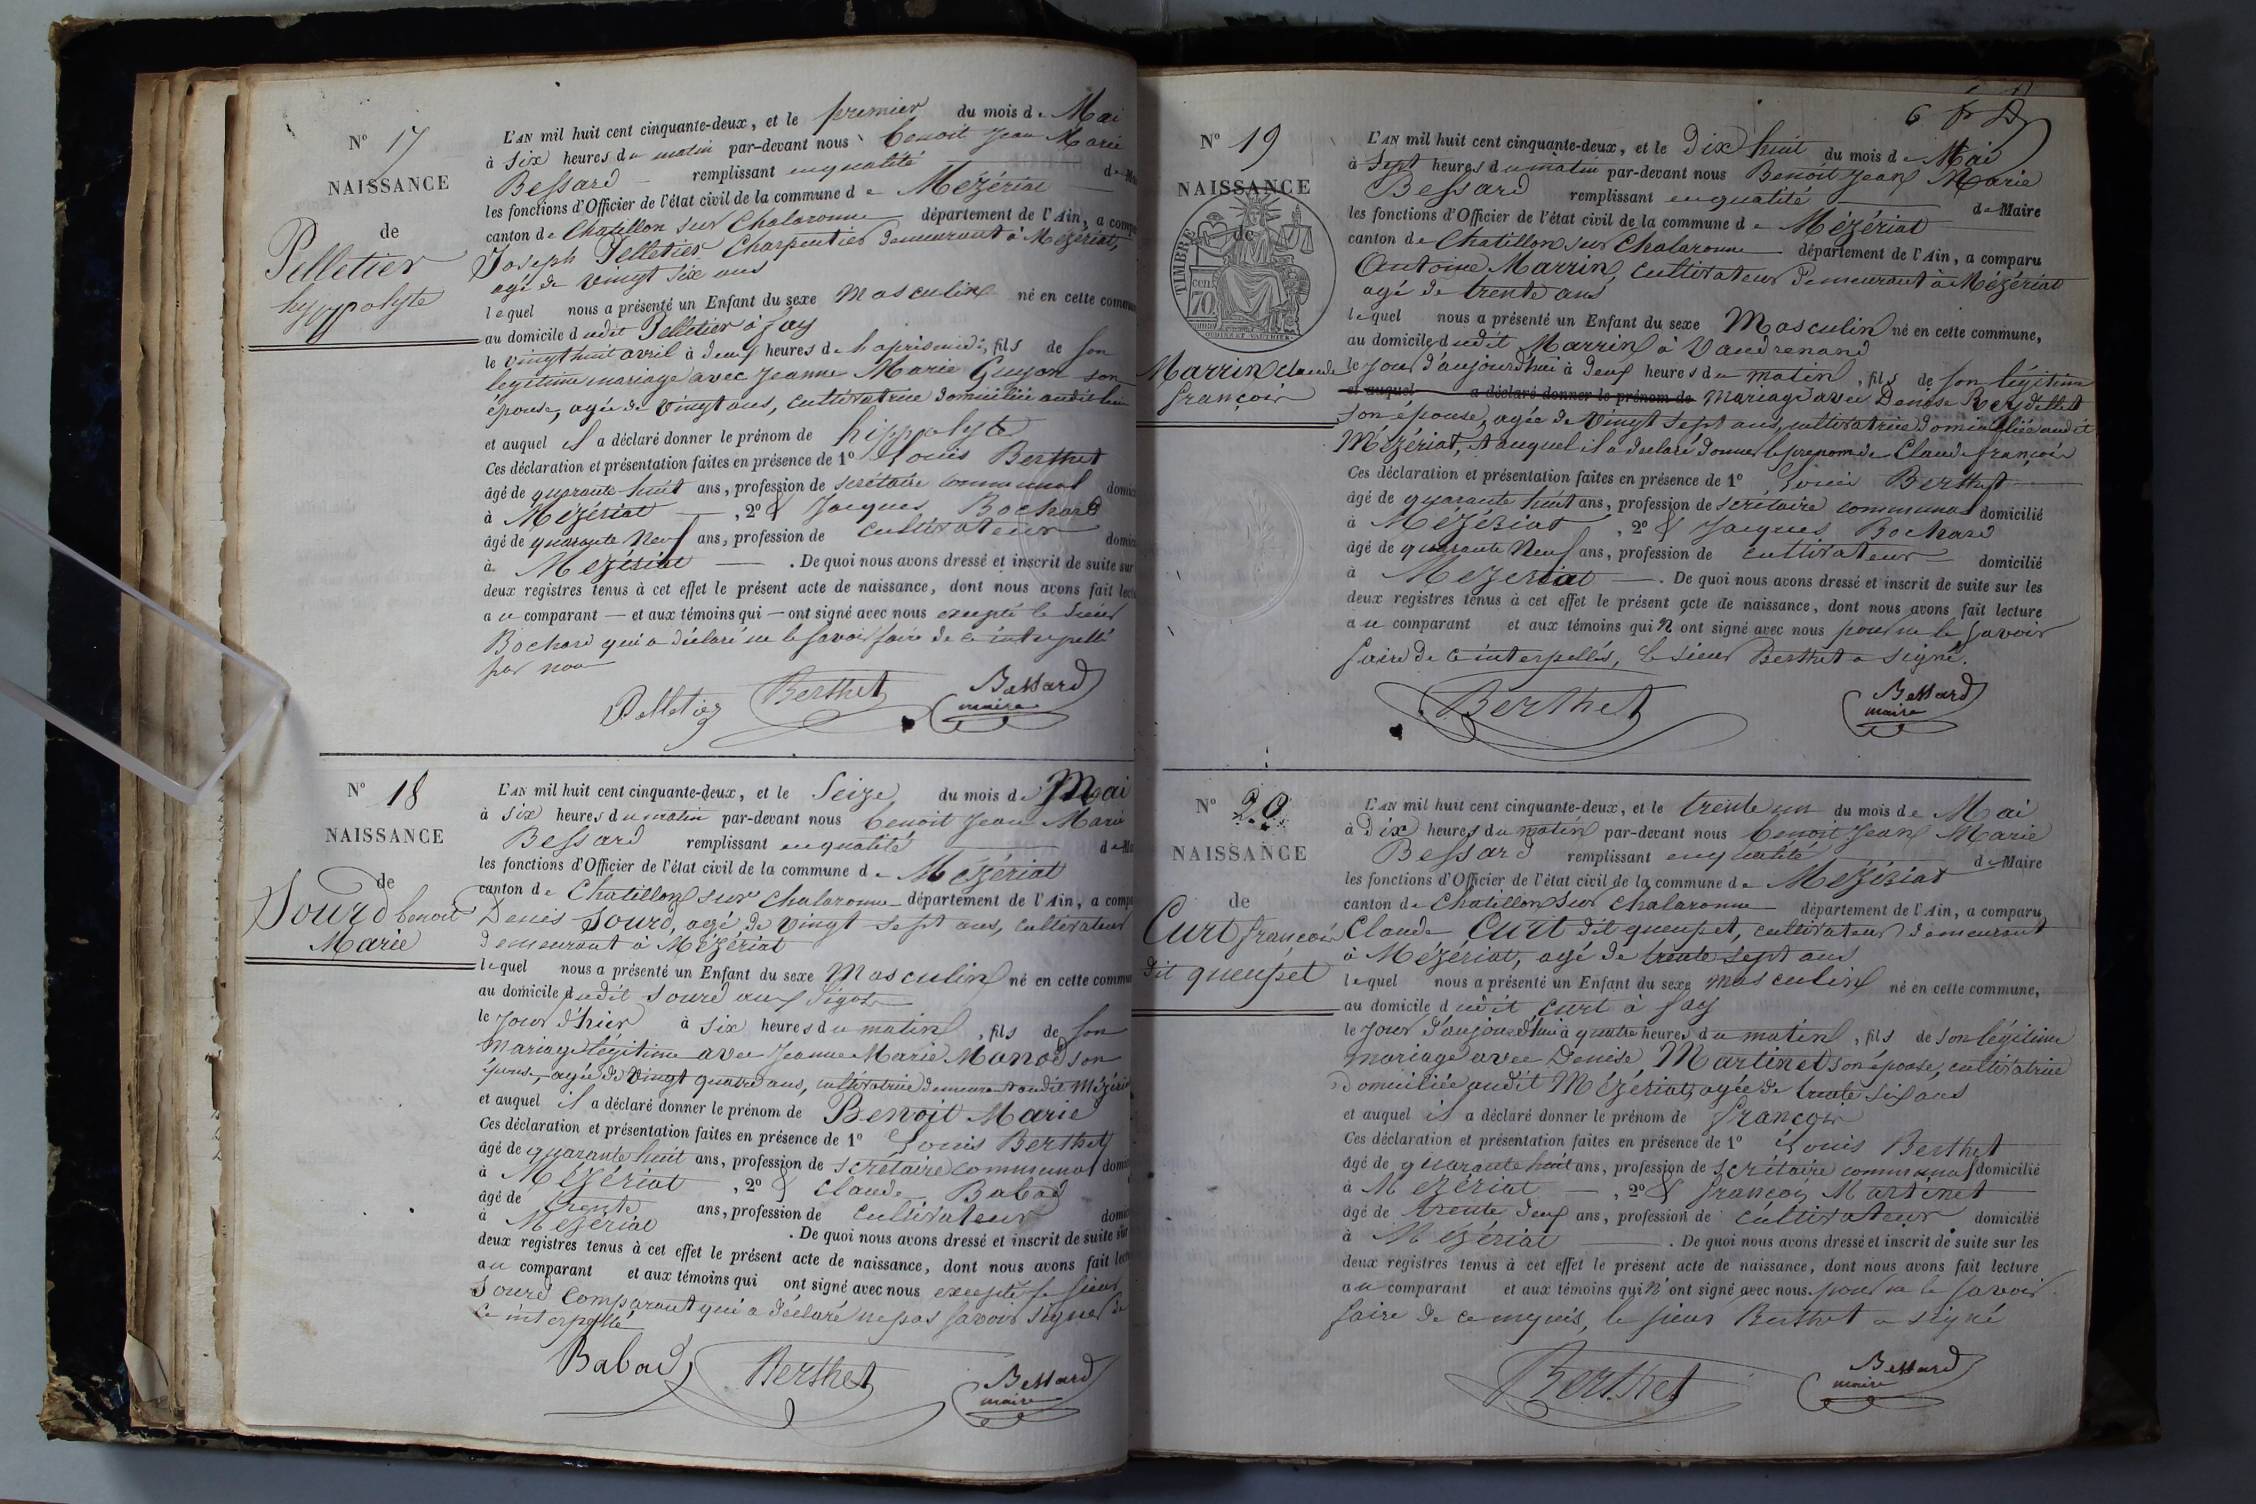 N° 17
NAISSANCE
de
Pelletier
hyppolyte
L'AN mil huit cent cinquante-deux, et le premier du mois de Mai
à six heures du matin par-devant nous benoit Jean Marie
Bessard remplissant en qualité de
les fonctions d'Officier de l'état civil de la commune de Mézériat
canton de Chatillon sur Chalaronne département de l'Ain, a
Joseph Pelletier Charpentier demeurant à Mézériat,
agé de vingt six ans
lequel nous a présenté un Enfant du sexe Masculin né en cette
au domicile dudit Pelletier à fay
le vingt huit avril à deux heures de l'aprismidi, fils de son
légitime mariage avec Jeanne Marie Guyon son
épouse, agée de vingt ans, cultivatrice domiciliée audit lieu
et auquel il a déclaré donner le prénom de hippolyte
Ces déclaration et présentation faites en présence de 1° Louis Berthet
âgé de quarante huit ans, profession de secrétaire communal
à Mézériat, 2° & Jacques Bochard
âgé de quarante Neuf ans, profession de cultivateur
à Mézériat. De quoi nous avons dressé et inscrit de suite sur
deux registres tenus à cet effet le présent acte de naissance, dont nous avons fait
au comparant — et aux témoins qui — ont signé avec nous excepté le sieur
Bochard qui a déclaré ne le savoir faire de ce interpellé
par nous
Pelletier Berthet Bessard
maire
N° 18
NAISSANCE
de
Sourd benoit
Marie
L'AN mil huit cent cinquante-deux, et le Seize du mois de Mai
à six heures du matin par-devant nous benoit Jean Marie
Bessard remplissant en qualité de
les fonctions d'Officier de l'état civil de la commune de Mézériat
canton de Chatillon sur Chalaronne département de l'Ain, a
Denis Sourd, agé de vingt sept ans, cultivateur
demeurant à Mézériat
lequel nous a présenté un Enfant du sexe Masculin né en cette
au domicile dudit Sourd aux
le jour d'hier à six heures du matin, fils de son
mariage légitime avec Jeanne Marie Monod son
épouse, agée de vingt quatre ans, cultivatrice audit
et auquel il a déclaré donner le prénom de Benoit Marie
Ces déclaration et présentation faites en présence de 1° Louis Berthet
âgé de quarante huit ans, profession de secrétaire communal
à Mézériat, 2° & Claude Babad
âgé de trente ans, profession de cultivateur
à Mézériat. De quoi nous avons dressé et inscrit de suite sur
deux registres tenus à cet effet le présent acte de naissance, dont nous avons fait
au comparant et aux témoins qui ont signé avec nous excepté le sieur
Sourd comparant qui a déclaré ne pas savoir signer de
ce interpellé
Babad Berthet Bessard
maire
N° 19
NAISSANCE
de
TIMBRE
70
Marrin Claude
françois
L'AN mil huit cent cinquante-deux, et le Dix huit du mois de Mai
à Sept heures du matin par-devant nous Benoit Jean Marie
Bessard remplissant en qualité de Maire
les fonctions d'Officier de l'état civil de la commune de Mézériat
canton de Chatillon sur Chalaronne département de l'Ain, a comparu
Antoine Marrin, cultivateur demeurant à Mézériat
agé de trente ans
lequel nous a présenté un Enfant du sexe Masculin né en cette commune,
au domicile dudit Marrin à Vaudrenand
le jour d'aujourd'hui à deux heures du matin, fils de son légitime
et auquel a déclaré donner le prénom de mariage avec Denise Reydellet
son épouse, agée de vingt sept ans, cultivatrice domiciliée audit
Mézériat, et auquel il a déclaré donner le prenom de Claude françois
Ces déclaration et présentation faites en présence de 1° Louis Berthet
âgé de quarante huit ans, profession de secrétaire communal domicilié
à Mézériat, 2° & Jacques Bochard
âgé de quarante Neuf ans, profession de cultivateur domicilié
à Mézériat. De quoi nous avons dressé et inscrit de suite sur les
deux registres tenus à cet effet le présent acte de naissance, dont nous avons fait lecture
au comparant et aux témoins qui n ont signé avec nous pour ne le savoir
faire de ce interpellés, le sieur Berthet a signé.
Berthet Bessard
maire
N° 20
NAISSANCE
de
Curt françois
dit queupet
L'AN mil huit cent cinquante-deux, et le trente un du mois de Mai
à Dix heures du matin par-devant nous benoit Jean Marie
Bessard remplissant en qualité de Maire
les fonctions d'Officier de l'état civil de la commune de Mézériat
canton de Chatillon sur Chalaronne département de l'Ain, a comparu
Claude Curt dit queupet, cultivateur demeurant
à Mézériat, agé de trente sept ans
lequel nous a présenté un Enfant du sexe masculin né en cette commune,
au domicile dudit Curt à fay
le jour d'aujourd'hui à quatre heures du matin, fils de son légitime
mariage avec Denise Martinet son épouse, cultivatrice
domiciliée audit Mézériat, agée de trente six ans
et auquel il a déclaré donner le prénom de françois
Ces déclaration et présentation faites en présence de 1° Louis Berthet
âgé de quarante huit ans, profession de secrétaire communal domicilié
à Mézériat, 2° & françois Martinet
âgé de trente deux ans, profession de cultivateur domicilié
à Mézériat. De quoi nous avons dressé et inscrit de suite sur les
deux registres tenus à cet effet le présent acte de naissance, dont nous avons fait lecture
au comparant et aux témoins qui n'ont signé avec nous pour ne le savoir
faire de ce requis, le sieur Berthet a signé
Berthet Bessard
maire